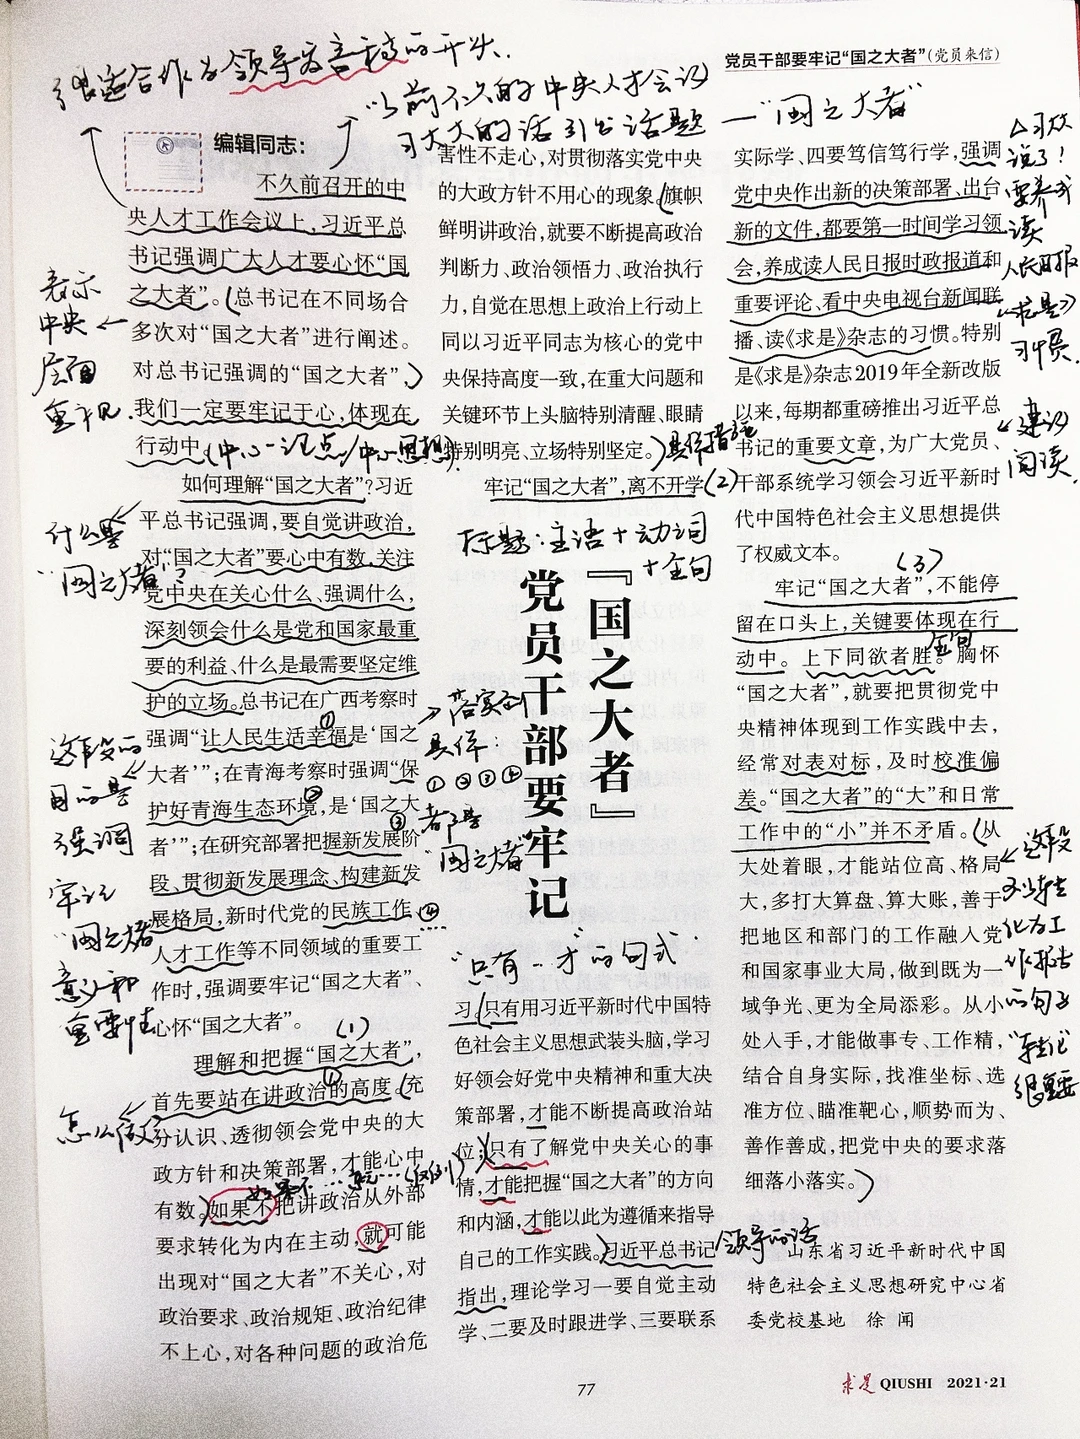 党员干部要牢记“国之大者”(党员来信)
很适合作为领导发言稿的开头.
“以前不久的中央人才会议
习大大的话引出话题
—“国之大者”
编辑同志：
不久前召开的中
央人才工作会议上,习近平总
书记强调广大人才要心怀“国
之大者”。总书记在不同场合
多次对“国之大者”进行阐述。
对总书记强调的“国之大者”,
我们一定要牢记于心,体现在
行动中。
(中心论点/中心思想).
如何理解“国之大者”?习近
平总书记强调,要自觉讲政治,
对“国之大者”要心中有数,关注
党中央在关心什么、强调什么,
深刻领会什么是党和国家最重
要的利益、什么是最需要坚定维
护的立场。总书记在广西考察时
强调“让人民生活幸福是‘国之
大者’”;在青海考察时强调“保
护好青海生态环境,是‘国之大
者’”;在研究部署把握新发展阶
段、贯彻新发展理念、构建新发
展格局,新时代党的民族工作、
人才工作等不同领域的重要工
作时,强调要牢记“国之大者”、
心怀“国之大者”。
(1)
理解和把握“国之大者”,
首先要站在讲政治的高度。充
分认识、透彻领会党中央的大
政方针和决策部署,才能心中
有数。如果不把讲政治从外部
要求转化为内在主动,就可能
出现对“国之大者”不关心,对
政治要求、政治规矩、政治纪律
不上心,对各种问题的政治危
表示
中央
层面
重视.
什么是
“国之大者”?
这段的
目的是
强调
牢记
“国之大者”
意义和
重要性
怎么做?
如果不…就…(反例)
害性不走心,对贯彻落实党中央
的大政方针不用心的现象。旗帜
鲜明讲政治,就要不断提高政治
判断力、政治领悟力、政治执行
力,自觉在思想上政治上行动上
同以习近平同志为核心的党中
央保持高度一致,在重大问题和
关键环节上头脑特别清醒、眼睛
特别明亮、立场特别坚定。
具体措施
牢记“国之大者”,离不开学
(2)
标题:主语+动词
+金句
『国之大者』
党员干部要牢记
落实到
具体:
①②③④
者都是
“国之大者”
“只有…才”的句式.
习。只有用习近平新时代中国特
色社会主义思想武装头脑,学习
好领会好党中央精神和重大决
策部署,才能不断提高政治站
位;只有了解党中央关心的事
情,才能把握“国之大者”的方向
和内涵,才能以此为遵循来指导
自己的工作实践。习近平总书记
指出,理论学习一要自觉主动
学、二要及时跟进学、三要联系
领导的话
实际学、四要笃信笃行学,强调
党中央作出新的决策部署、出台
新的文件,都要第一时间学习领
会,养成读人民日报时政报道和
重要评论、看中央电视台新闻联
播、读《求是》杂志的习惯。特别
是《求是》杂志2019年全新改版
以来,每期都重磅推出习近平总
书记的重要文章,为广大党员、
干部系统学习领会习近平新时
代中国特色社会主义思想提供
了权威文本。
(3)
牢记“国之大者”,不能停
留在口头上,关键要体现在行
动中。上下同欲者胜。胸怀
金句
“国之大者”,就要把贯彻党中
央精神体现到工作实践中去,
经常对表对标,及时校准偏
差。“国之大者”的“大”和日常
工作中的“小”并不矛盾。从
大处着眼,才能站位高、格局
大,多打大算盘、算大账,善于
把地区和部门的工作融入党
和国家事业大局,做到既为一
域争光、更为全局添彩。从小
处入手,才能做事专、工作精,
结合自身实际,找准坐标、选
准方位、瞄准靶心,顺势而为、
善作善成,把党中央的要求落
细落小落实。
说了!
要养成
读
人民日报
《求是》
习惯.
建议
阅读.
这段
可以转
化为工
作报告
的句子
“转化”
很重要
山东省习近平新时代中国
特色社会主义思想研究中心省
委党校基地 徐 闻
77
求是 QIUSHI 2021·21